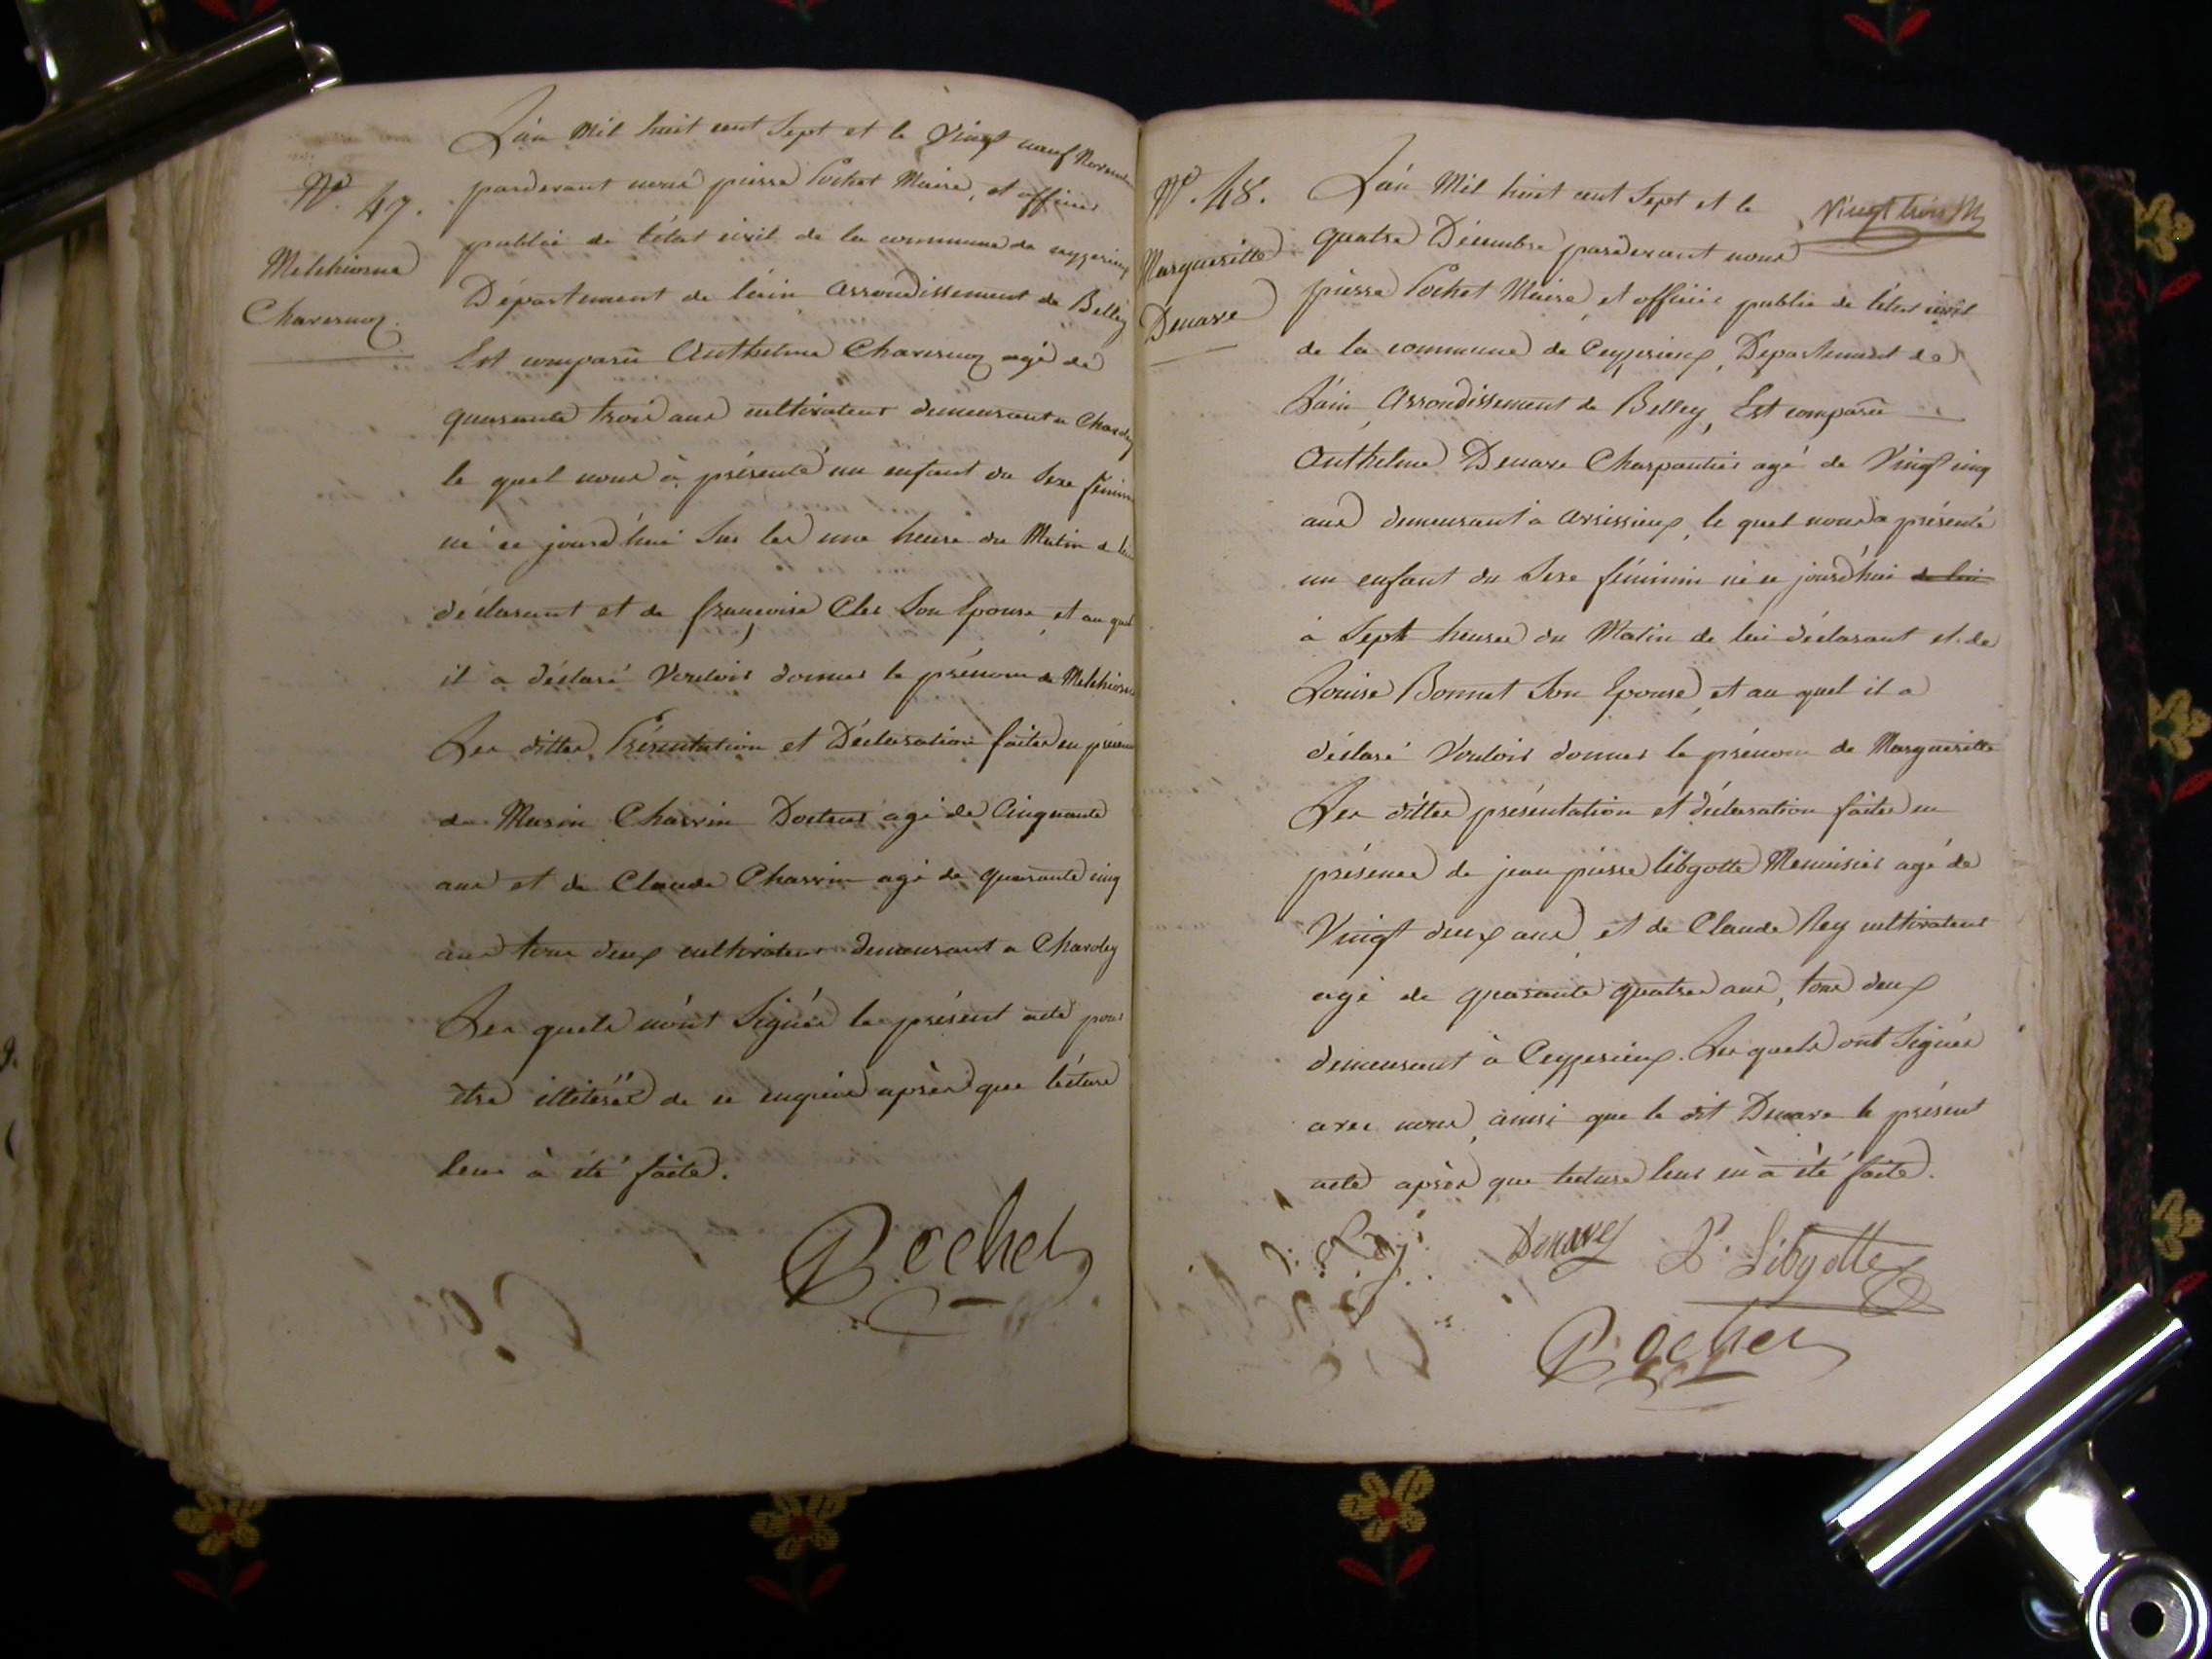 N.º 47.
Melchionne
Chavernoz.
L'an Mil huit cent Sept et le Vingt neuf Novembre
pardevant nous pierre Pochet Maire, et officier
public de l'état civil de la commune de ceyzerieux
Département de l'ain arrondissement de Belley
Est comparû Anthelme Chavernoz agé de
quarante trois ans cultivateur demeurant a Charoley
le quel nous à présenté un enfant du Sexe féminin
né ce jourd'hui Sur les une heure du Matin de lui
déclarant et de françoise Cler Son Epouse, et au quel
il a déclaré Vouloir donner le prénom de Melchionne
Les dittes Présentation et Déclaration faites en présence
de Marin Charvin Docteur agé de Cinquante
ans et de Claude Charvin agé de quarante cinq
ans tous deux cultivateur demeurant a Charoley
Les quels n'ont Signés le présent acte pour
être illitérés de ce enquis après que lecture
leur à été faite.
Pochet
N.º 48.
Margueritte
Denave
Vingt trois
L'an Mil huit cent Sept et le
quatre Décembre pardevant nous
pierre Pochet Maire, et officier public de l'état civil
de la commune de Ceyzerieux, Departement de
L'ain, Arrondissement de Belley, Est comparû
Anthelme Denave Charpantier agé de Vingt cinq
ans demeurant à avrissieux, le quel nous a présenté
un enfant du Sexe féminin né ce jourd'hui de lui
à Sept heures du Matin de lui déclarant et de
Louise Bonnet Son Epouse, et au quel il a
déclaré Vouloir donner le prénom de Margueritte
Les dittes présentation et déclaration faites en
présence de jean pierre libgotte Menuisier agé de
Vingt deux ans, et de Claude Rey cultivateur
agé de quarante quatre ans, tous deux
demeurant à Ceyzerieux. Les quels ont Signés
avec nous, ainsi que le dit Denave le présent
acte après que lecture leur en à été faite.
Rey Denave P. Libgotte
Pochet